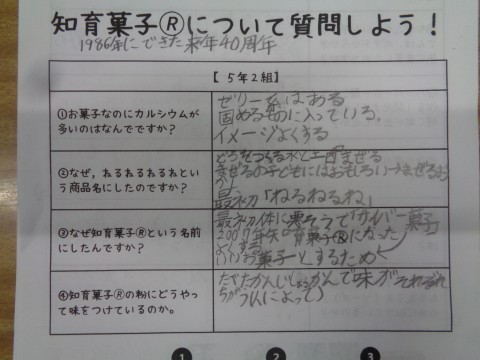 知育菓子®について質問しよう！
1986年にできた来年40周年
【5年2組】
①お菓子なのにカルシウムが
多いのはなんでですか？
ゼリー系はある
固めるものに入っている。
イメージよくする
②なぜ，ねるねるねるねとい
う商品名にしたのですか？
どろをつくる水と土をまぜる
まぜるの子どもにはおもしろい→まぜるお
最初「ねりねりね」
③なぜ知育菓子®という名前
にしたんですか？
最初体に悪そうで「サイバー菓子」
2007年 知育菓子®になった
よくする
いいお菓子とするため
④知育菓子®の粉にどうやっ
て味をつけているのか。
かんで味がそれぞれ
ちがう
によって
1
2
3